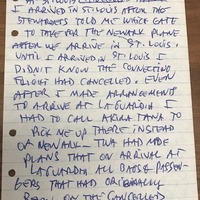 I ARRIVED IN ST. LOUIS AFTER THE
STEWARDESS TOLD ME WHICH GATE
TO TAKE FOR THE NEWARK PLANE
AFTER WE ARRIVE IN ST. LOUIS.
UNTIL I ARRIVED IN ST. LOUIS I
DIDN'T KNOW THE CONNECTING
FLIGHT HAD CANCELLED. EVEN
AFTER I MADE ARRANGEMENTS
TO ARRIVE AT LA GUARDIA I
HAD TO CALL AKIRA TANA TO
PICK ME UP THERE INSTEAD
OF NEWARK – TWA HAD MADE
PLANS THAT ON ARRIVAL AT
LA GUARDIA ALL BAGS & PASSEN-
GERS THAT HAD ORIGINALLY
BEEN ON THE CANCELLED